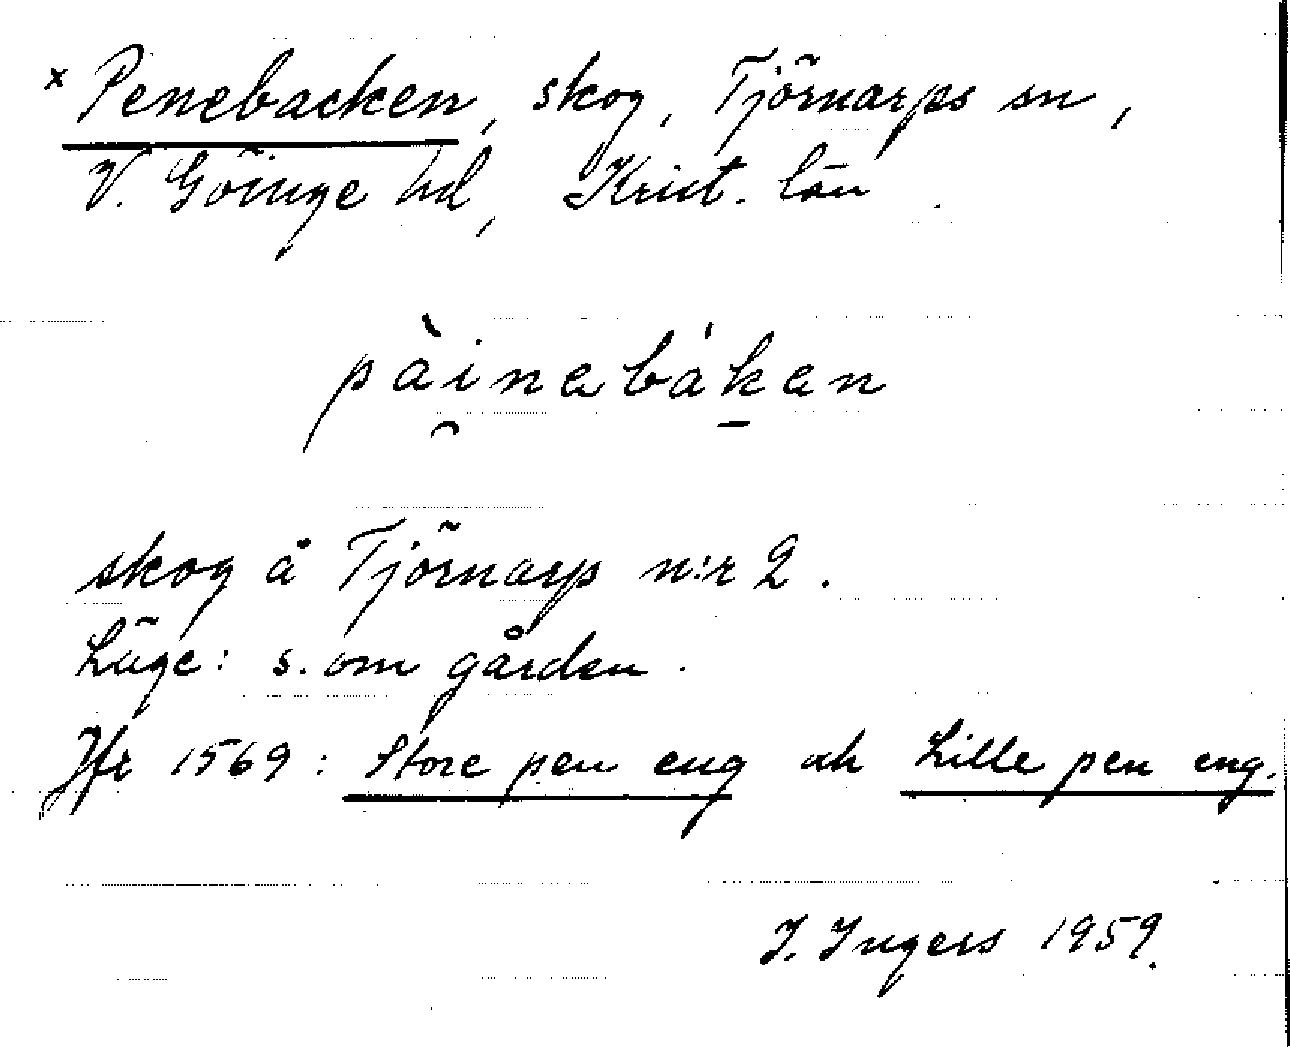 x Penebacken, skog, Tjörnarps sn,
V. Göinge hd, Krist. län.
pàinebáken
skog å Tjörnarp n:r 2.
Läge: s. om gården.
Jfr 1569: Store pen eng och Lille pen eng.
I. Ingers 1959.